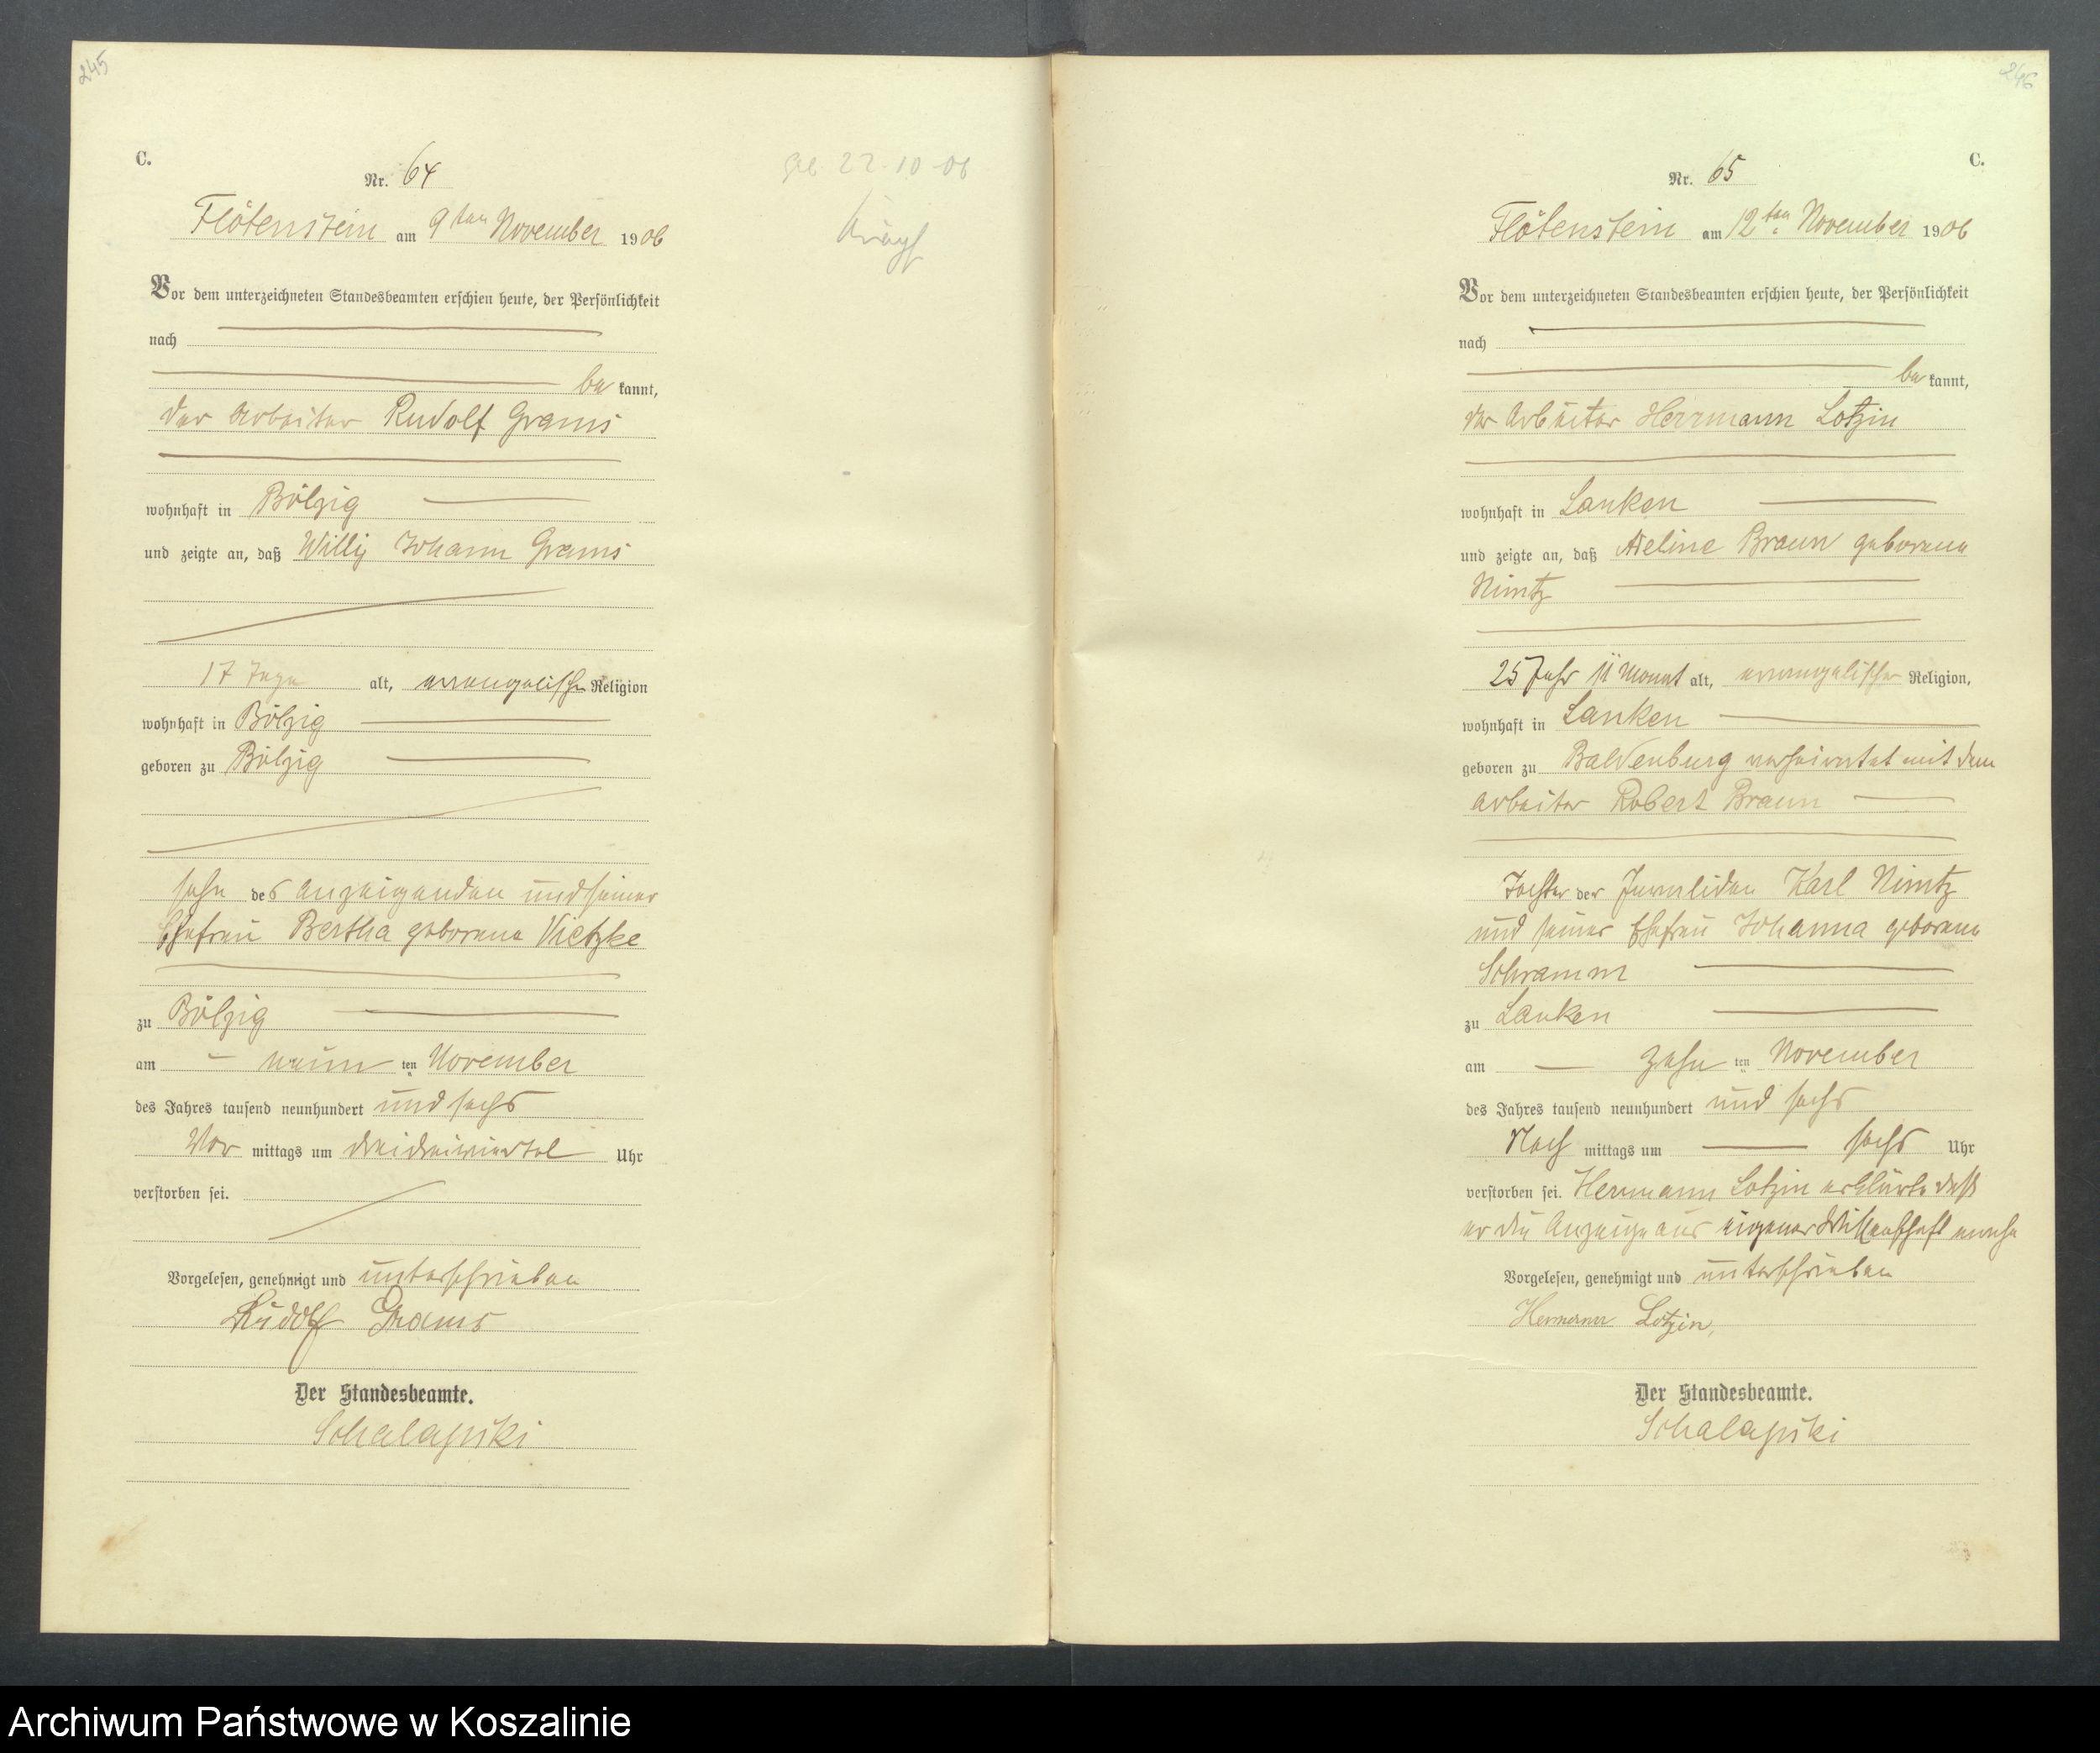 245
C.
Nr. 64
geb. 22.10.06
Flötenstein am 9ten November 1906
Vor dem unterzeichneten Standesbeamten erschien heute, der Persönlichkeit
nach
be kannt,
der Arbeiter Rudolf Grams
wohnhaft in Bölzig
und zeigte an, daß Willy Johann Grams
17 Tage alt, evangelischer Religion
wohnhaft in Bölzig
geboren zu Bölzig
Sohn des Anzeigenden und seiner
Ehefrau Bertha geborene Vietzke
zu Bölzig
am neun ten November
des Jahres tausend neunhundert und sechs
Vor mittags um dreidreiviertel Uhr
verstorben sei.
Vorgelesen, genehmigt und unterschrieben
Rudolf Grams
Der Standesbeamte.
Schalapski
246
C.
Nr. 65
Flötenstein am 12ten November 1906
Vor dem unterzeichneten Standesbeamten erschien heute, der Persönlichkeit
nach
be kannt,
der Arbeiter Herrmann Lotzin
wohnhaft in Lanken
und zeigte an, daß Adeline Braun geborene
Nimtz
25 Jahr 11 Monat alt, evangelischer Religion,
wohnhaft in Lanken
geboren zu Baldenburg verheiratet mit dem
Arbeiter Robert Braun
Tochter der Invaliden Karl Nimtz
und seiner Ehefrau Johanna geborene
Schramm
zu Lanken
am zehn ten November
des Jahres tausend neunhundert und sechs
Nach mittags um sechs Uhr
verstorben sei. Herrmann Lotzin erklärte daß
er die Anzeige aus eigener Wissenschaft mache
Vorgelesen, genehmigt und unterschrieben
Hermann Lotzin,
Der Standesbeamte.
Schalapski
Archiwum Państwowe w Koszalinie